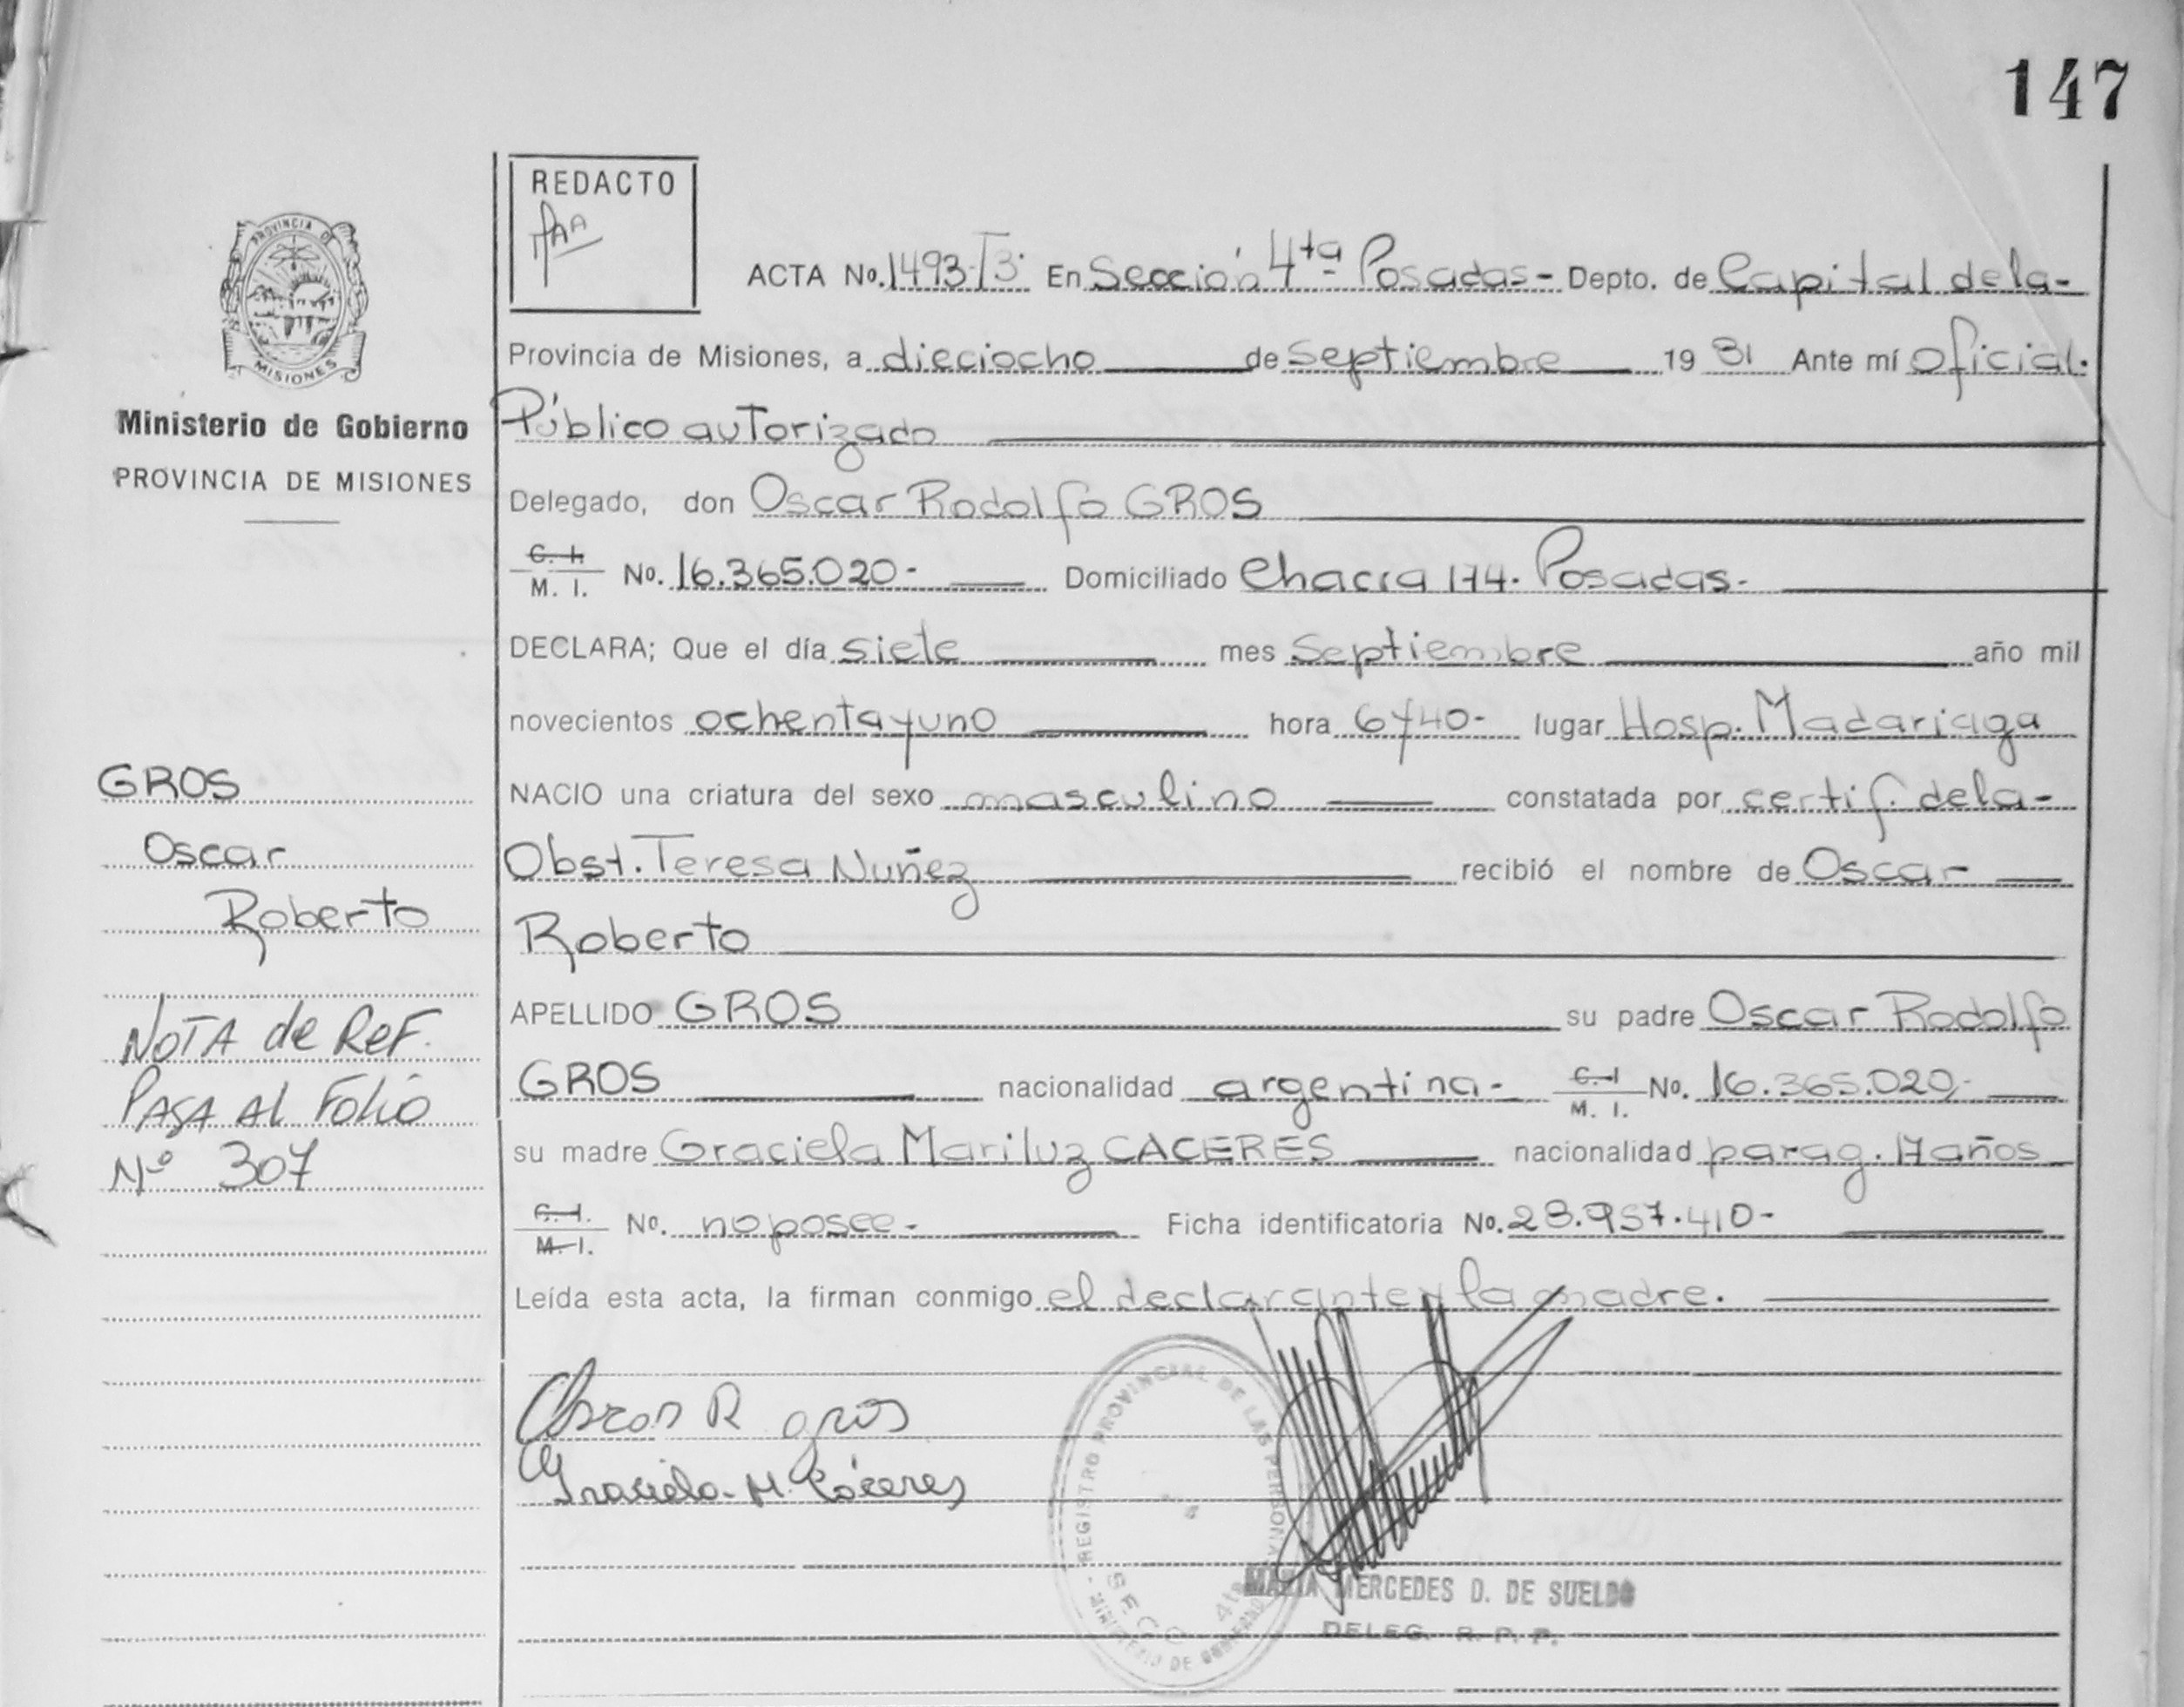 147
REDACTO
PROVINCIA DE
MISIONES
ACTA No. 1493-T3- En Sección 4ta Posadas- Depto. de Capital dela-
Provincia de Misiones, a dieciocho de Septiembre 1981 Ante mí oficial.
Ministerio de Gobierno
Público autorizado
PROVINCIA DE MISIONES
Delegado, don Oscar Rodolfo GROS
C. I. M. I. No. 16.365.020- Domiciliado Chacra 174. Posadas-
DECLARA; Que el día siete mes Septiembre año mil
novecientos ochenta y uno hora 6y40- lugar Hosp. Madariaga
GROS
NACIO una criatura del sexo masculino constatada por certif. dela-
Oscar
Obst. Teresa Nuñez recibió el nombre de Oscar
Roberto
Roberto
APELLIDO GROS su padre Oscar Rodolfo
NOTA de ReF.
GROS nacionalidad argentina- C. I. M. I. No. 16.365.020-
PASA Al Folio
su madre Graciela Mariluz CACERES nacionalidad parag. 17años
Nº 307
C. I. M. I. No. no posee- Ficha identificatoria No. 28.957.410-
Leída esta acta, la firman conmigo el declarante y la madre.
Oscar R gros
Graciela M. Cáceres
REGISTRO PROVINCIAL DE LAS PERSONAS
SECC 4ta
MINISTERIO DE GOBIERNO
MARIA MERCEDES D. DE SUELDO
DELEG. R. P. P.